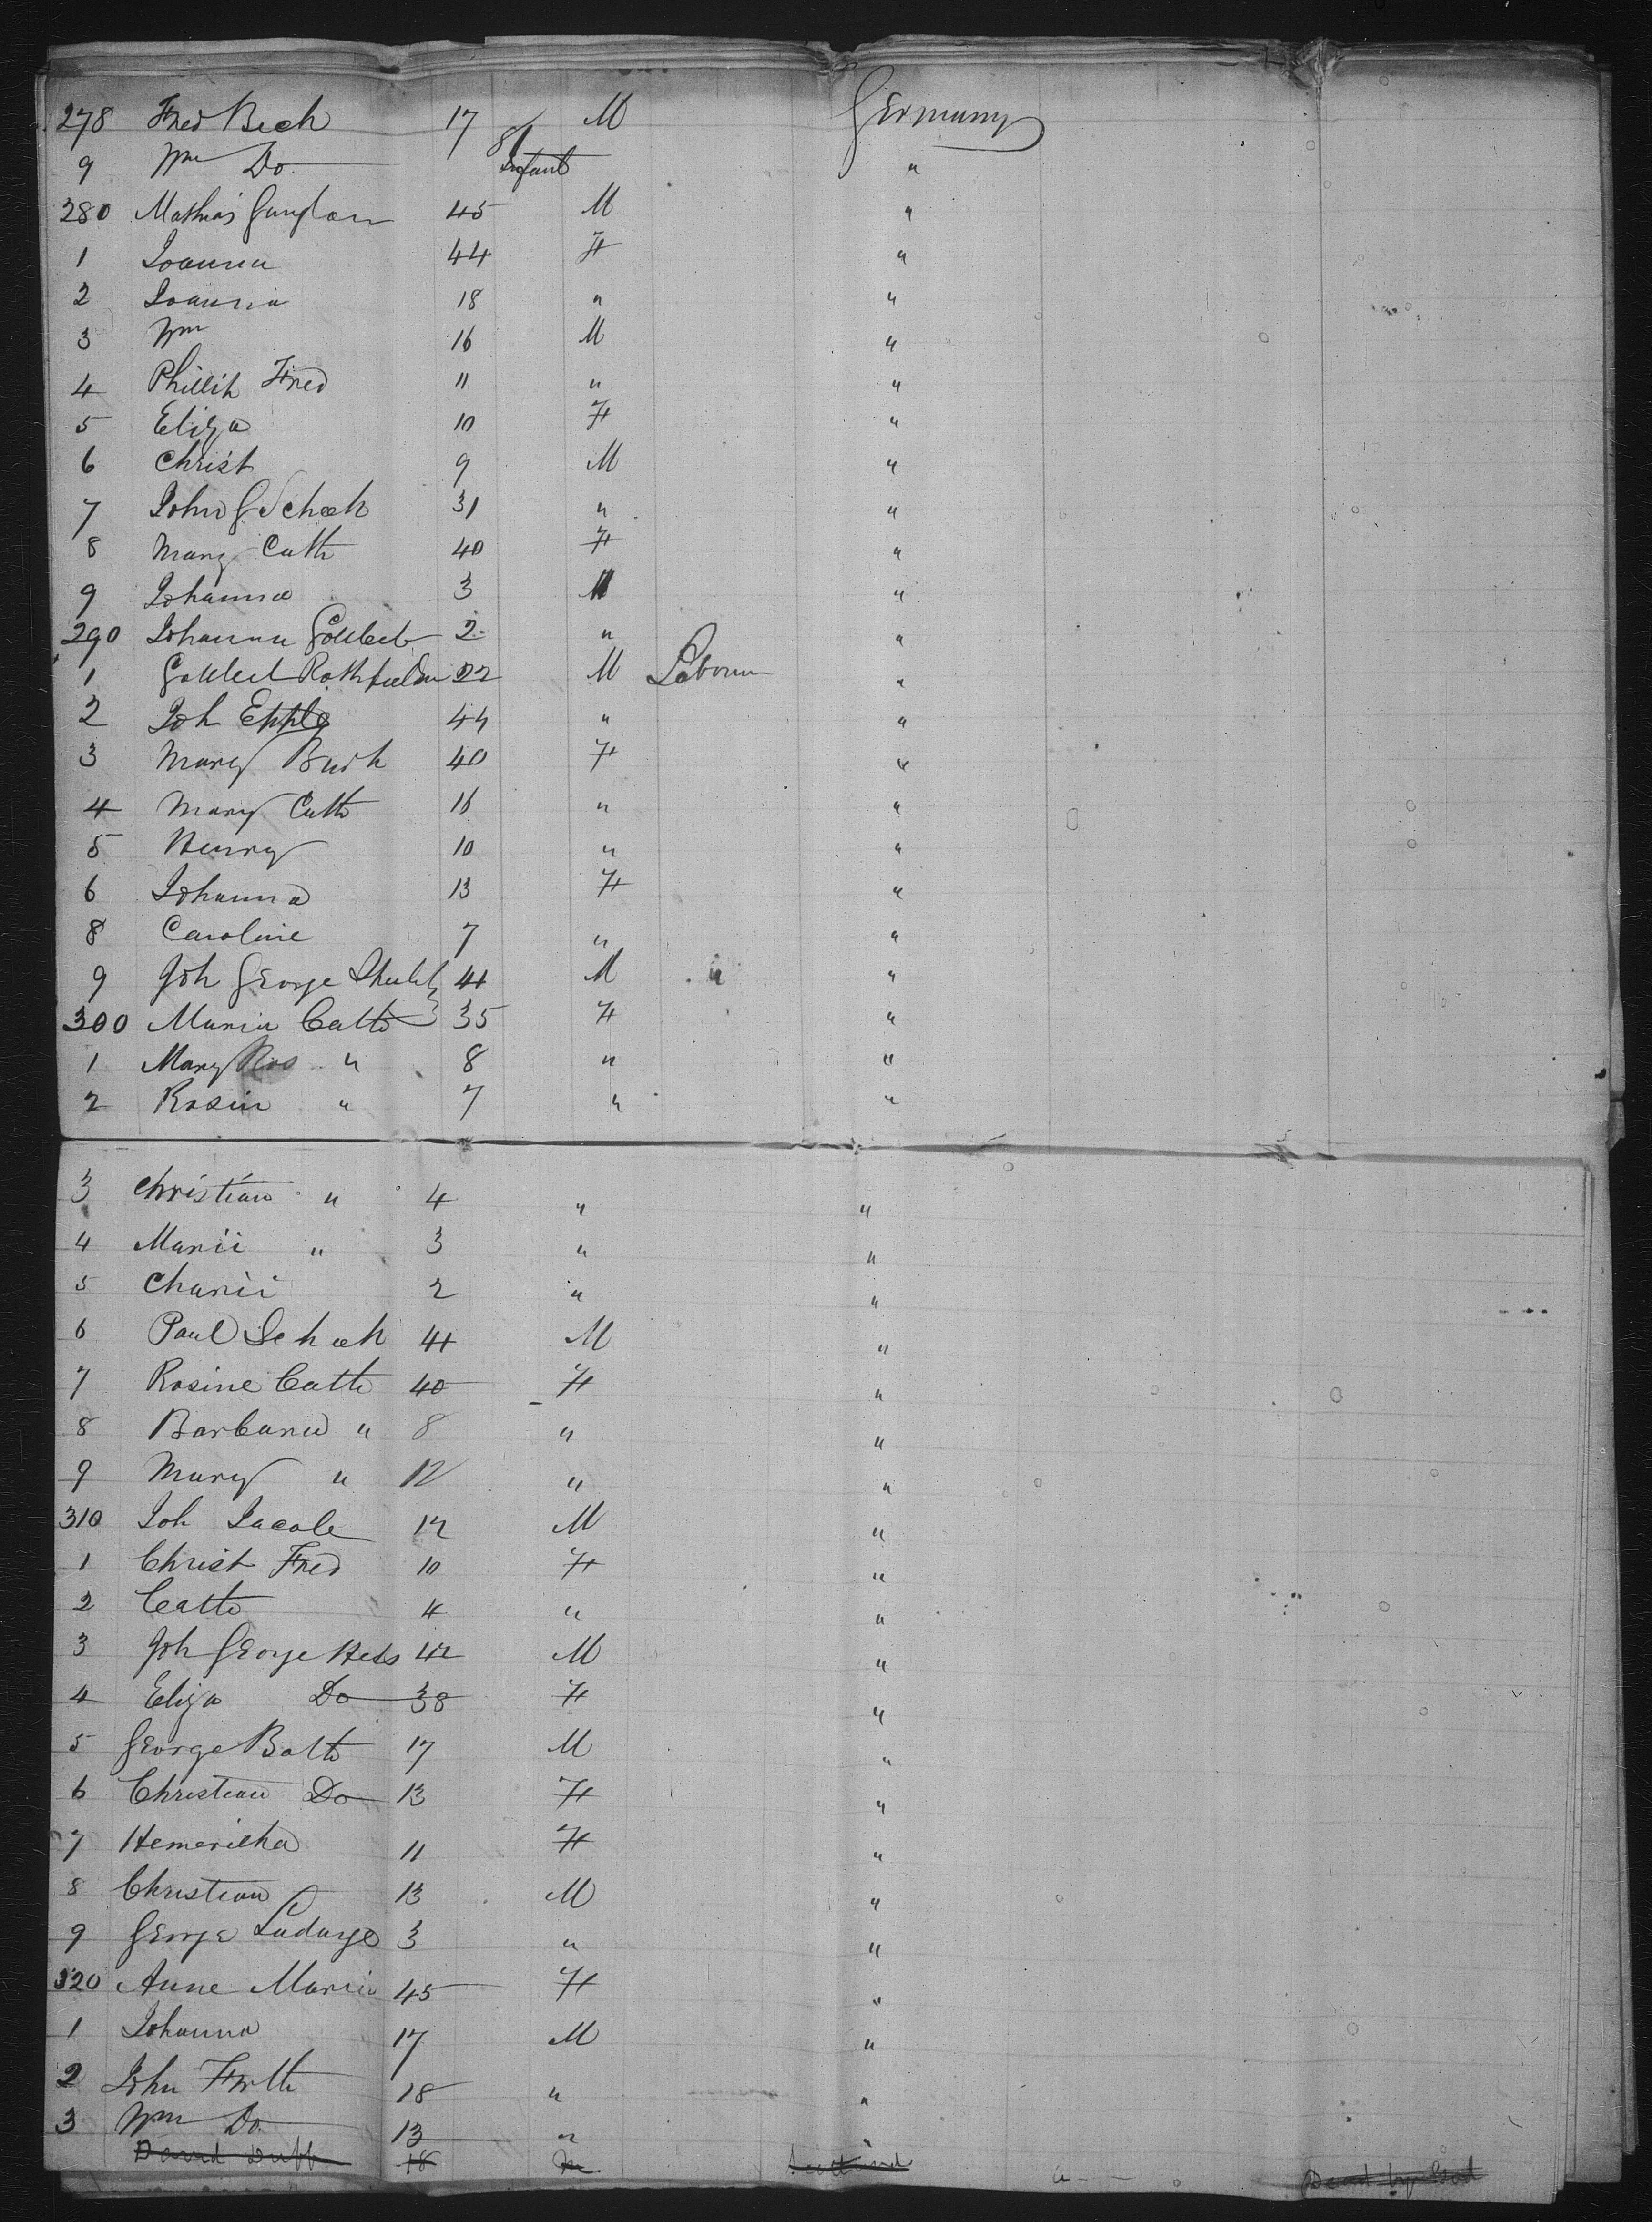 278 Fred Bech 17 M Germany
9 Wm Do Infant "
280 Mathias 45 M "
1 Joanna 44 F "
2 Joanna 18 " "
3 Wm 16 M "
4 Phillip Fred 11 " "
5 Eliza 10 F "
6 Christ 9 M "
7 John G Schoch 31 " "
8 Mary Cath 40 F "
9 Johanna 3 M "
290 Johanna Gottleib 2 " "
1 Gottleib 22 M "
2 Joh Epple 44 " "
3 Mary Barb 40 F "
4 Mary Cath 16 " "
5 Henry 10 " "
6 Johanna 13 F "
8 Caroline 7 " "
9 Joh George 41 M " "
300 Maria Cath 35 F "
1 Mary Ros " 8 " "
2 Rosin " 7 " "
3 Christian " 4 " "
4 Marii " 3 " "
5 Charii 2 " "
6 Paul Schoch 41 M "
7 Rosine Cath 40 F "
8 Barbara " 8 " "
9 Mary " 12 " "
310 Joh Jacob 12 M "
1 Christ Fred 10 F "
2 Cath 4 " "
3 Joh George Hess 42 M "
4 Eliza Do 38 F "
5 George Balth 17 M "
6 Christian Do 13 F "
7 11 F "
8 Christian 13 M "
9 George 3 " "
320 Anne Maria 45 F "
1 Johanna 17 M "
2 John Forth 18 " "
3 Wm Do 13 " "
David Duff 18 M Scotland